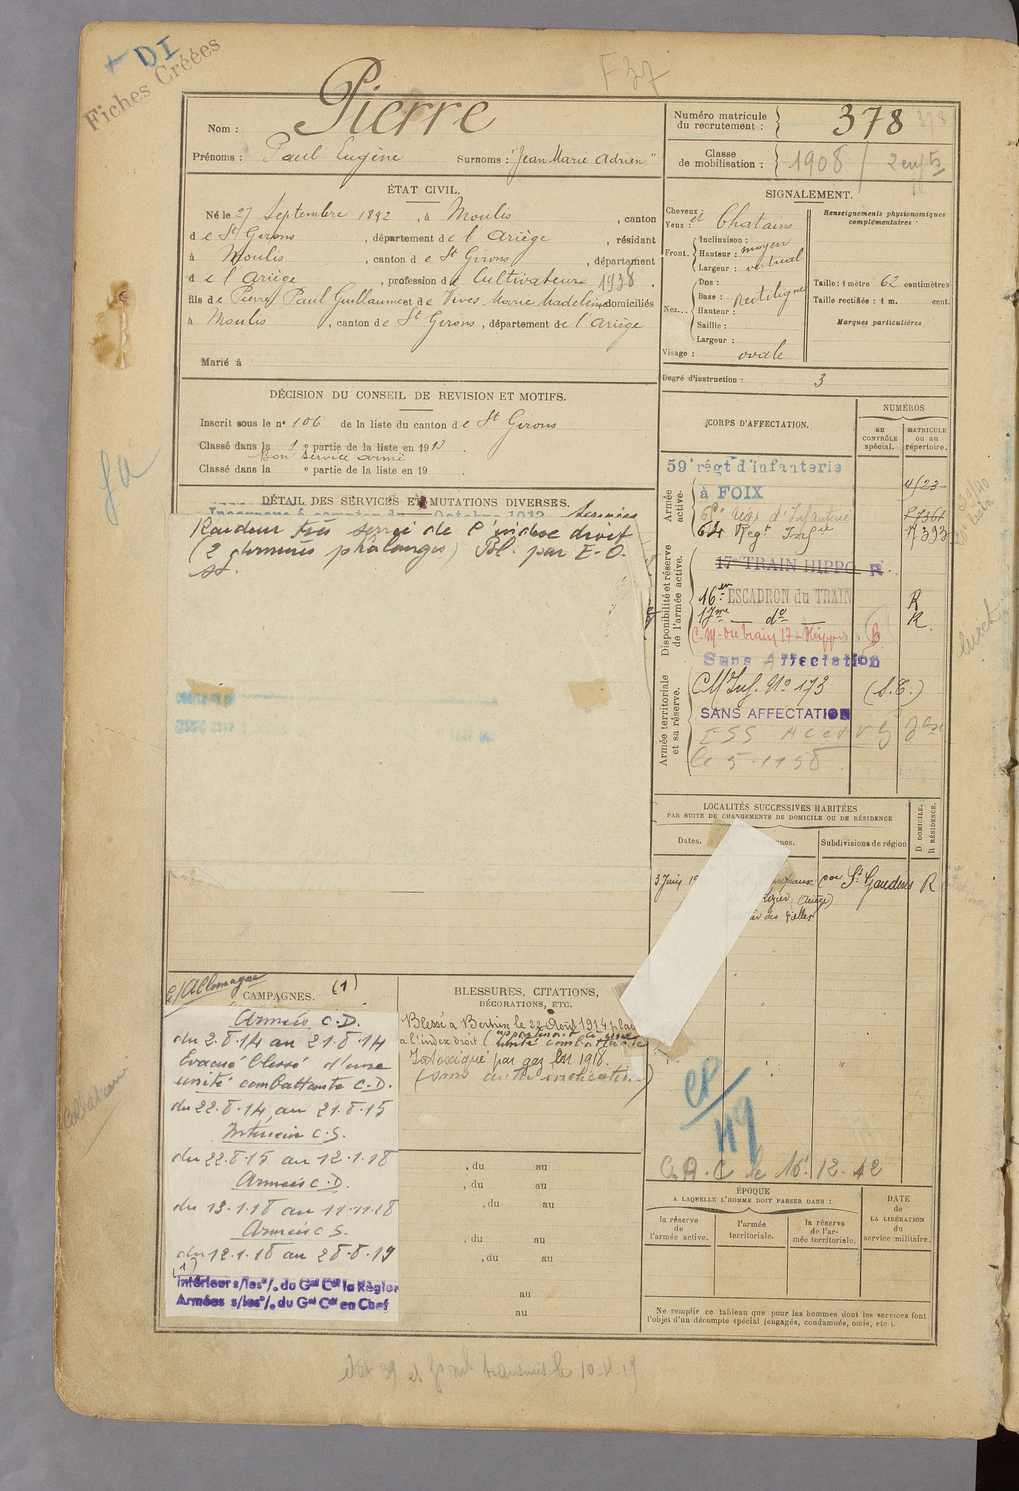 + DI
Fiches Créées
F 37
Nom : Pierre
Prénoms : Paul Eugène Surnoms : "Jean Marie Adrien"
Numéro matricule du recrutement : 378 378
Classe de mobilisation : 1908 /
ÉTAT CIVIL.
Né le 27 Septembre 1892, à Moulis, canton
de St Girons, département de l'Ariège, résidant
à Moulis, canton de St Girons, département
de l'Ariège, profession de Cultivateur 1938.
fils de Pierre Paul Guillaume et de Vives Marie Madeleine domiciliés
à Moulis, canton de St Girons, département de l'Ariège
Marié à
SIGNALEMENT.
Cheveux :
Yeux : et Chatains
Front. Inclinaison :
Hauteur : moyen
Largeur : vertical
Nez... Dos :
Base : rectiligne
Hauteur :
Saillie :
Largeur :
Visage : ovale
Renseignements physionomiques
complémentaires :
Taille : 1 mètre 62 centimètres
Taille rectifiée : 1 m. cent.
Marques particulières
Degré d'instruction : 3
DÉCISION DU CONSEIL DE REVISION ET MOTIFS.
Inscrit sous le n° 106 de la liste du canton de St Girons
Classé dans la 1e partie de la liste en 191
Bon service armé
Classé dans la e partie de la liste en 19
DÉTAIL DES SERVICES ET MUTATIONS DIVERSES.
Octobre 1913
Raideur très serrée de l'index droit
(2 dernières phalanges) Bl. par E. O.
CORPS D'AFFECTATION.
NUMÉROS
AU CONTRÔLE spécial.
MATRICULE OU AU répertoire.
Armée active.
59e régt d'infanterie
à FOIX
Regt d'Infanterie
64 Regt Infie
Disponibilité et réserve de l'armée active.
17e TRAIN HIPPO R
16en ESCADRON du TRAIN R
17me do R
C. M. du train 17 - Hippo R
Sans Affectation
Armée territoriale et sa réserve.
CM Inf. No 173 (S. T.)
SANS AFFECTATION
LOCALITÉS SUCCESSIVES HABITÉES
PAR SUITE DE CHANGEMENTS DE DOMICILE OU DE RÉSIDENCE
Dates.
Subdivisions de région
D DOMICILE.
R RÉSIDENCE.
3 Juin 19 St Gaudens R
C/Allemagne
CAMPAGNES. (1)
Armées C.D.
du 2.8.14 au 21.8.14
Evacué blessé d'une
unité combattante C.D.
du 22.8.14 au 21.8.15
Intérieur C.S.
du 22.8.15 au 12.1.18
Armées C.D.
du 13.1.18 au 11.11.18
Armées C.S.
du 12.1.18 au 28.8.19
(1)
Intérieur s/les o/. du Gal Cdt la Région
Armées s/les o/. du Gal Cdt en Chef
BLESSURES, CITATIONS,
DÉCORATIONS, ETC.
Blessé à Bertrix le 22 Août 1914 plaie
à l'index droit (appartenait à une
unité combattante)
Intoxiqué par gaz en 1918
(sans autre indication)
, du au
, du au
, du au
, du au
, du au
au
au
CP/49
C. A. C le 16.12.42
ÉPOQUE
A LAQUELLE L'HOMME DOIT PASSER DANS :
la réserve de l'armée active.
l'armée territoriale.
la réserve de l'armée territoriale.
DATE de LA LIBÉRATION du service militaire.
Ne remplir ce tableau que pour les hommes dont les services font
l'objet d'un décompte spécial (engagés, condamnés, omis, etc.).